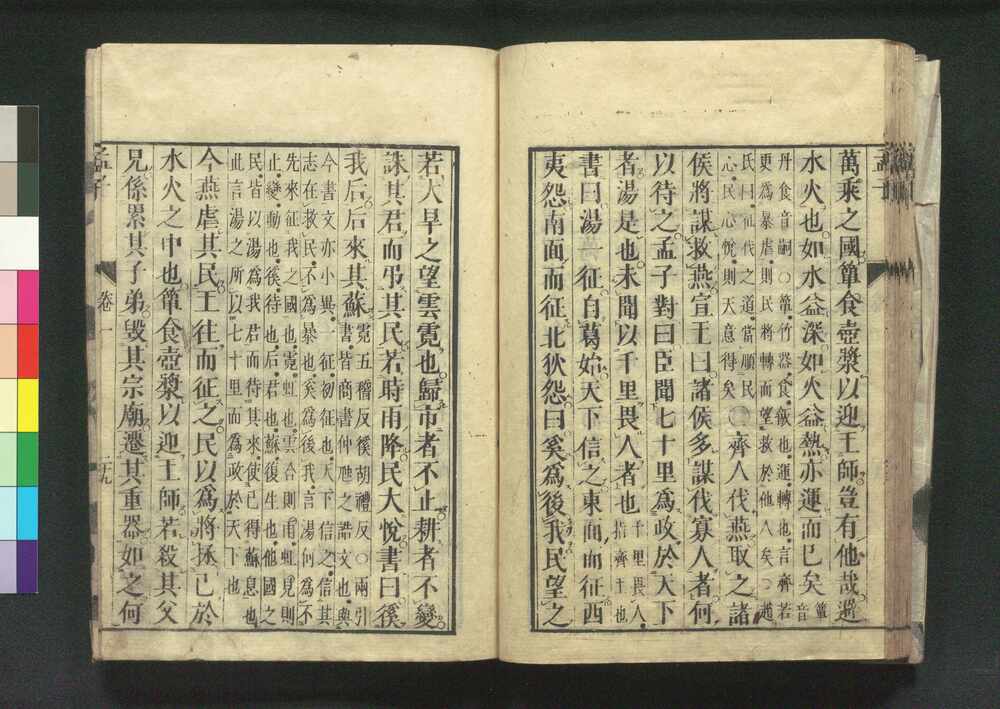 萬乘之國簞食壺漿以迎王師豈有他哉避
水火也如水益深如火益熱亦運而已矣簞音
丹食音嗣○簞竹器食飯也運轉也言齊若
更爲暴虐則民將轉而望救於他人矣○趙
氏曰征伐之道當順民
心民心悅則天意得矣
齊人伐燕取之諸
侯將謀救燕宣王曰諸侯多謀伐寡人者何
以待之孟子對曰臣聞七十里爲政於天下
者湯是也未聞以千里畏人者也千里畏人
指齊王也
書曰湯一征自葛始天下信之東面而征西
夷怨南面而征北狄怨曰奚爲後我民望之
孟子
若大旱之望雲霓也歸市者不止耕者不變
誅其君而弔其民若時雨降民大悅書曰徯
我后后來其蘇霓五稽反徯胡禮反○兩引
書皆商書仲虺之誥文也與
今書文亦小異一征初征也天下信之信其
志在救民不爲暴也奚爲後我言湯何爲不
先來征我之國也霓虹也雲合則雨虹見則
止變動也徯待也后君也蘇復生也他國之
民皆以湯爲我君而待其來使已得蘇息也
此言湯之所以七十里而爲政於天下也
今燕虐其民王往而征之民以爲將拯己於
水火之中也簞食壺漿以迎王師若殺其父
兄係累其子弟毀其宗廟遷其重器如之何
孟子 卷一